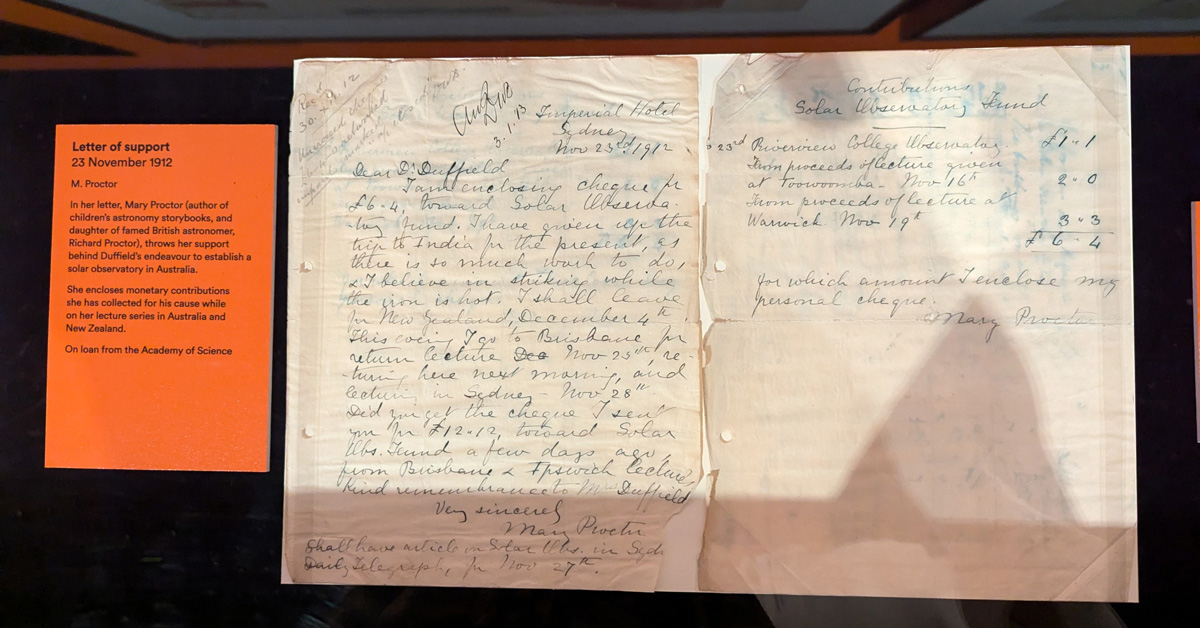 Letter of support
23 November 1912
M. Proctor
In her letter, Mary Proctor (author of
children's astronomy storybooks, and
daughter of famed British astronomer,
Richard Proctor), throws her support
behind Duffield's endeavour to establish a
solar observatory in Australia.
She encloses monetary contributions
she has collected for his cause while
on her lecture series in Australia and
New Zealand.
On loan from the Academy of Science
3.1.13
Imperial Hotel
Sydney
Nov 23rd, 1912
Dear Dr Duffield
I am enclosing cheque fr
£6-4, toward Solar Observa-
tory fund. I have given up the
trip to India fr the present, as
there is so much work to do,
& I believe in striking while
the iron is hot. I shall leave
fr New Zealand, December 4th
This I go to Brisbane fr
return lecture Dec Nov 25th, re-
turning here next morning, and
lecturing in Sydney - Nov 28th
Did you get the cheque I sent
you fr £12"12, toward Solar
Obs. Fund a few days ago,
from Brisbane & Ipswich lectures,
Kind remembrance to Mrs Duffield
Very sincerely
Mary Proctor
Shall have article on Solar Obs. in Syd.
Daily Telegraph, fr Nov 27th.
Contributions
Solar Observatory Fund
23rd Riverview College Observatory £1"1
From proceeds of lecture given
at Toowoomba - Nov 16th 2"0
From proceeds of lecture at
Warwick Nov 19th 3"3
£6-4
for which amount I enclose my
personal cheque.
Mary Proctor